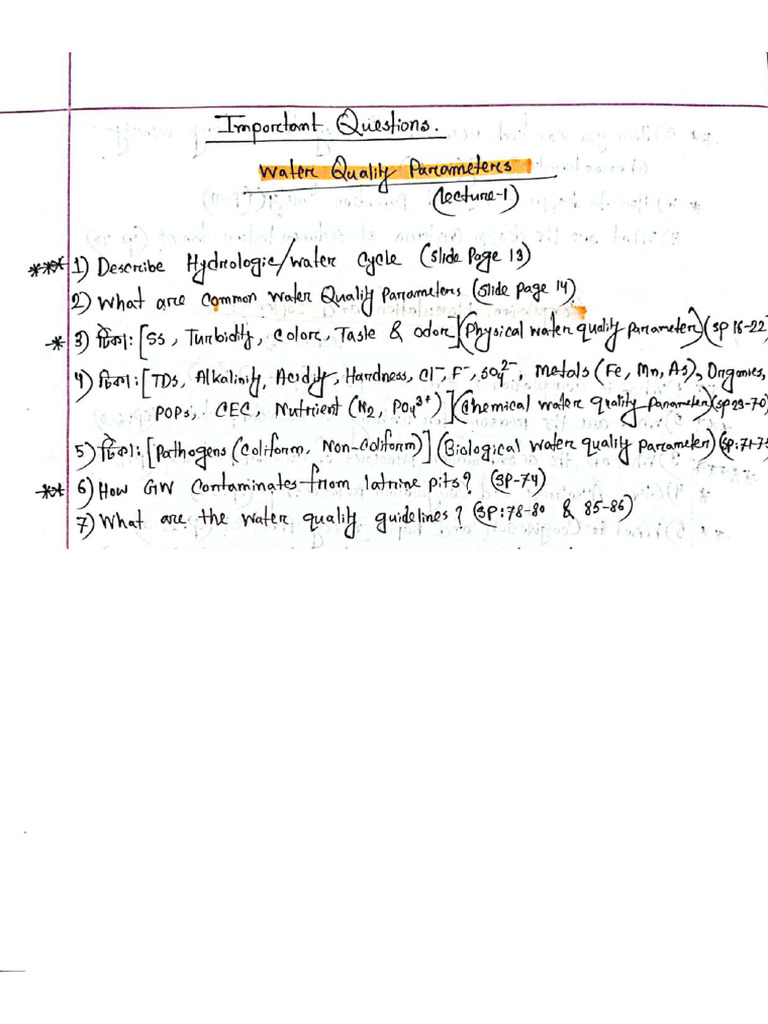 Important Questions.
Water Quality Parameters
(Lecture-1)
*** 1) Describe Hydrologic/water cycle (slide Page 13)
2) What are common Water Quality Parameters (slide page 14)
* 3) টিকা: [SS, Turbidity, Color, Taste & odor] (Physical water quality parameter) (SP 16-22
4) টিকা: [TDS, Alkalinity, Acidity, Hardness, Cl⁻, F⁻, SO₄²⁻, Metals (Fe, Mn, As), Organics,
POPs, CEC, Nutrient (N₂, PO₄³⁺)] (Chemical water quality parameter) (SP 23-70)
5) টিকা: [Pathogens (Coliform, Non-coliform)] (Biological water quality parameter) (SP:71-73
** 6) How GW contaminates from latrine pits? (SP-74)
7) What are the water quality guidelines? (SP:78-80 & 85-86)